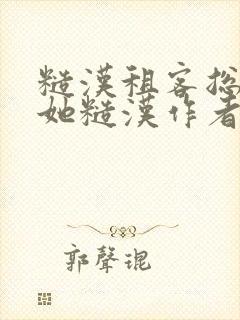 糙漢租客总
她糙漢作者
郭聲琨